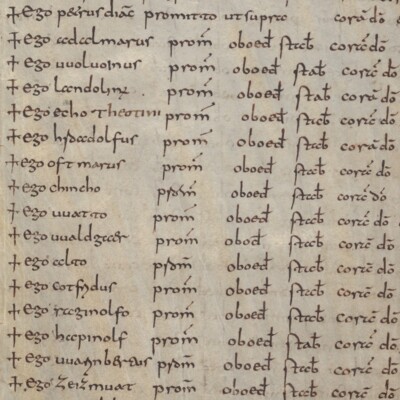 + ego petrus diac promitto ut supra corā dō
+ ego adalmarus prom oboed stab corā dō
+ ego uuoluoinus prom oboed stab corā dō
+ ego landolinz prom oboed stab corā dō
+ ego echo theotini prom oboed stab corā dō
+ ego hradolfus prom oboed stab corā dō
+ ego oftmarus prom oboed stab corā dō
+ ego chincho prom oboed stab corā dō
+ ego uuatto prom oboed stab corā dō
+ ego uualdgaer prom obod stab corā dō
+ ego alto prom oboed stab corā dō
+ ego prom oboed stab corā dō
+ ego raginolfo prom oboed stab corā dō
+ ego hepinolf prom oboed stab corā dō
+ ego prom oboed stab corā dō
+ ego prom oboed stab corā dō